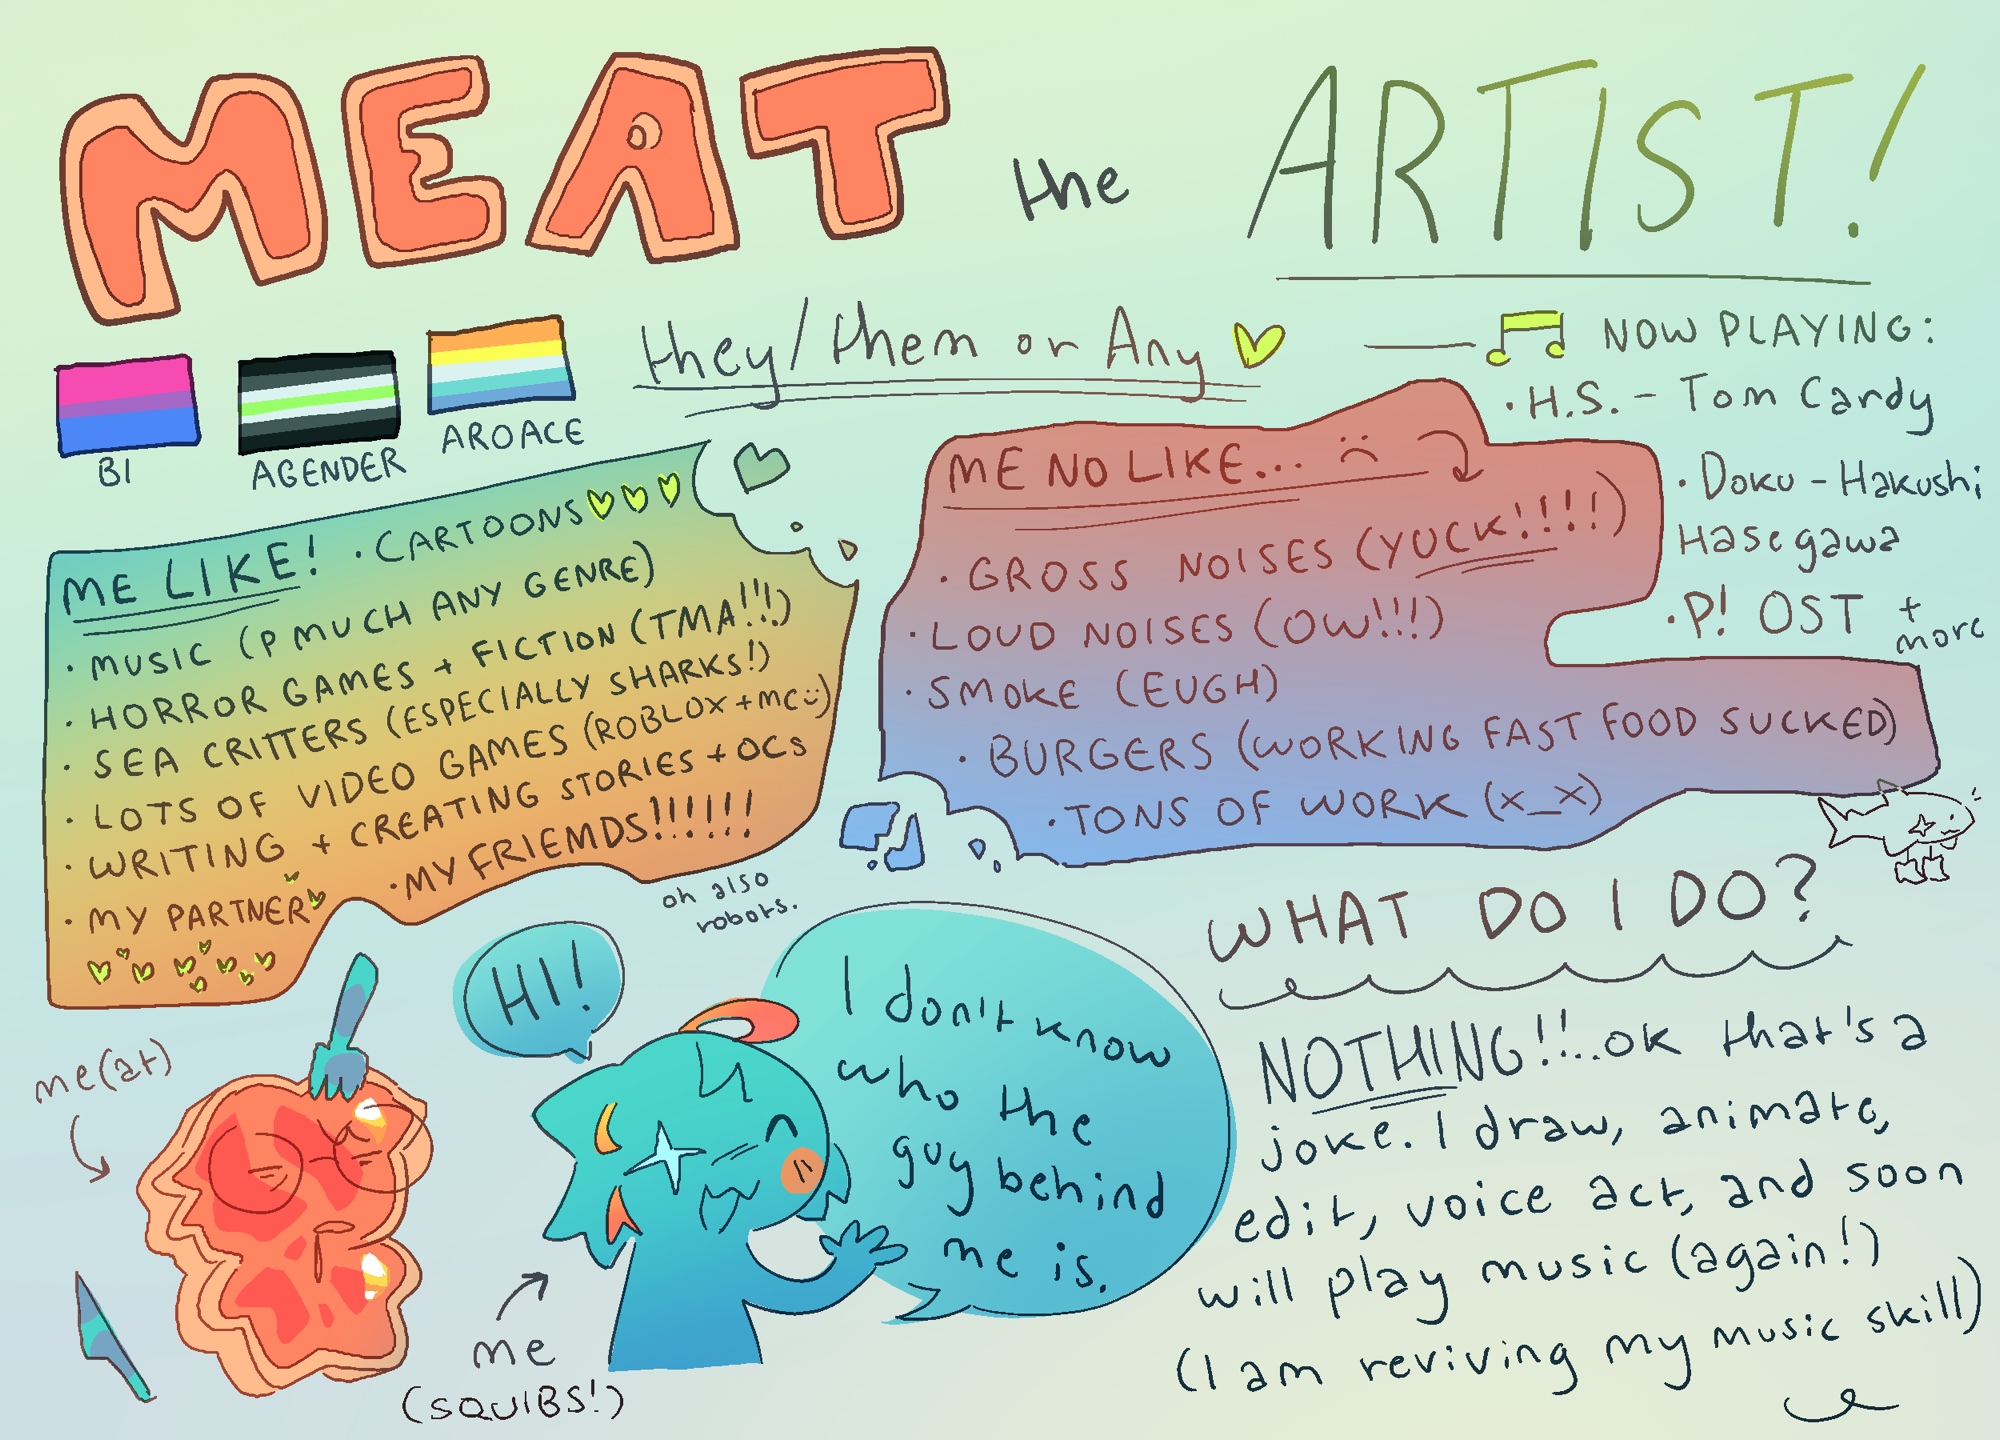 MEAT the ARTIST!
they/them or Any
BI
AGENDER
AROACE
NOW PLAYING:
· H.S. - Tom Cardy
· Doku - Hakushi
Hasegawa
· P! OST + more
ME LIKE! · CARTOONS
· MUSIC (P MUCH ANY GENRE)
· HORROR GAMES + FICTION (TMA!!!)
· SEA CRITTERS (ESPECIALLY SHARKS!)
· LOTS OF VIDEO GAMES (ROBLOX + MC :))
· WRITING + CREATING STORIES + OCs
· MY PARTNER · MY FRIENDS!!!!!!
oh also
robots.
ME NO LIKE... :(
· GROSS NOISES (YUCK!!!!)
· LOUD NOISES (OW!!!)
· SMOKE (EUGH)
· BURGERS (WORKING FAST FOOD SUCKED)
· TONS OF WORK (X_X)
me(at)
HI!
I don't know
who the
guy behind
me is.
me
(SQUIBS!)
WHAT DO I DO?
NOTHING!!...ok that's a
joke. I draw, animate,
edit, voice act, and soon
will play music (again!)
(I am reviving my music skill)